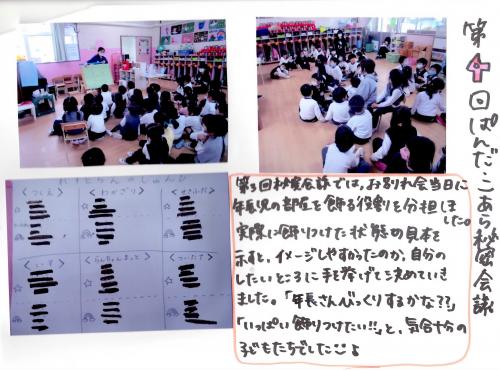 第4回ぱんだ・こあら秘密会議
第3回秘密会議では、お別れ会当日に
年長児の部屋を飾る役割を分担しました。
実際に飾りつけた状態の見本を
示すと、イメージしやすかったのか、自分の
したいところに手を挙げて決めていき
ました。「年長さんびっくりするかな??」
「いっぱい飾りつけたい!!」と、気合十分の
子どもたちでした
<つくえ>
<わかざり>
<いす>
<らんちょんまっと>
<ついたて>